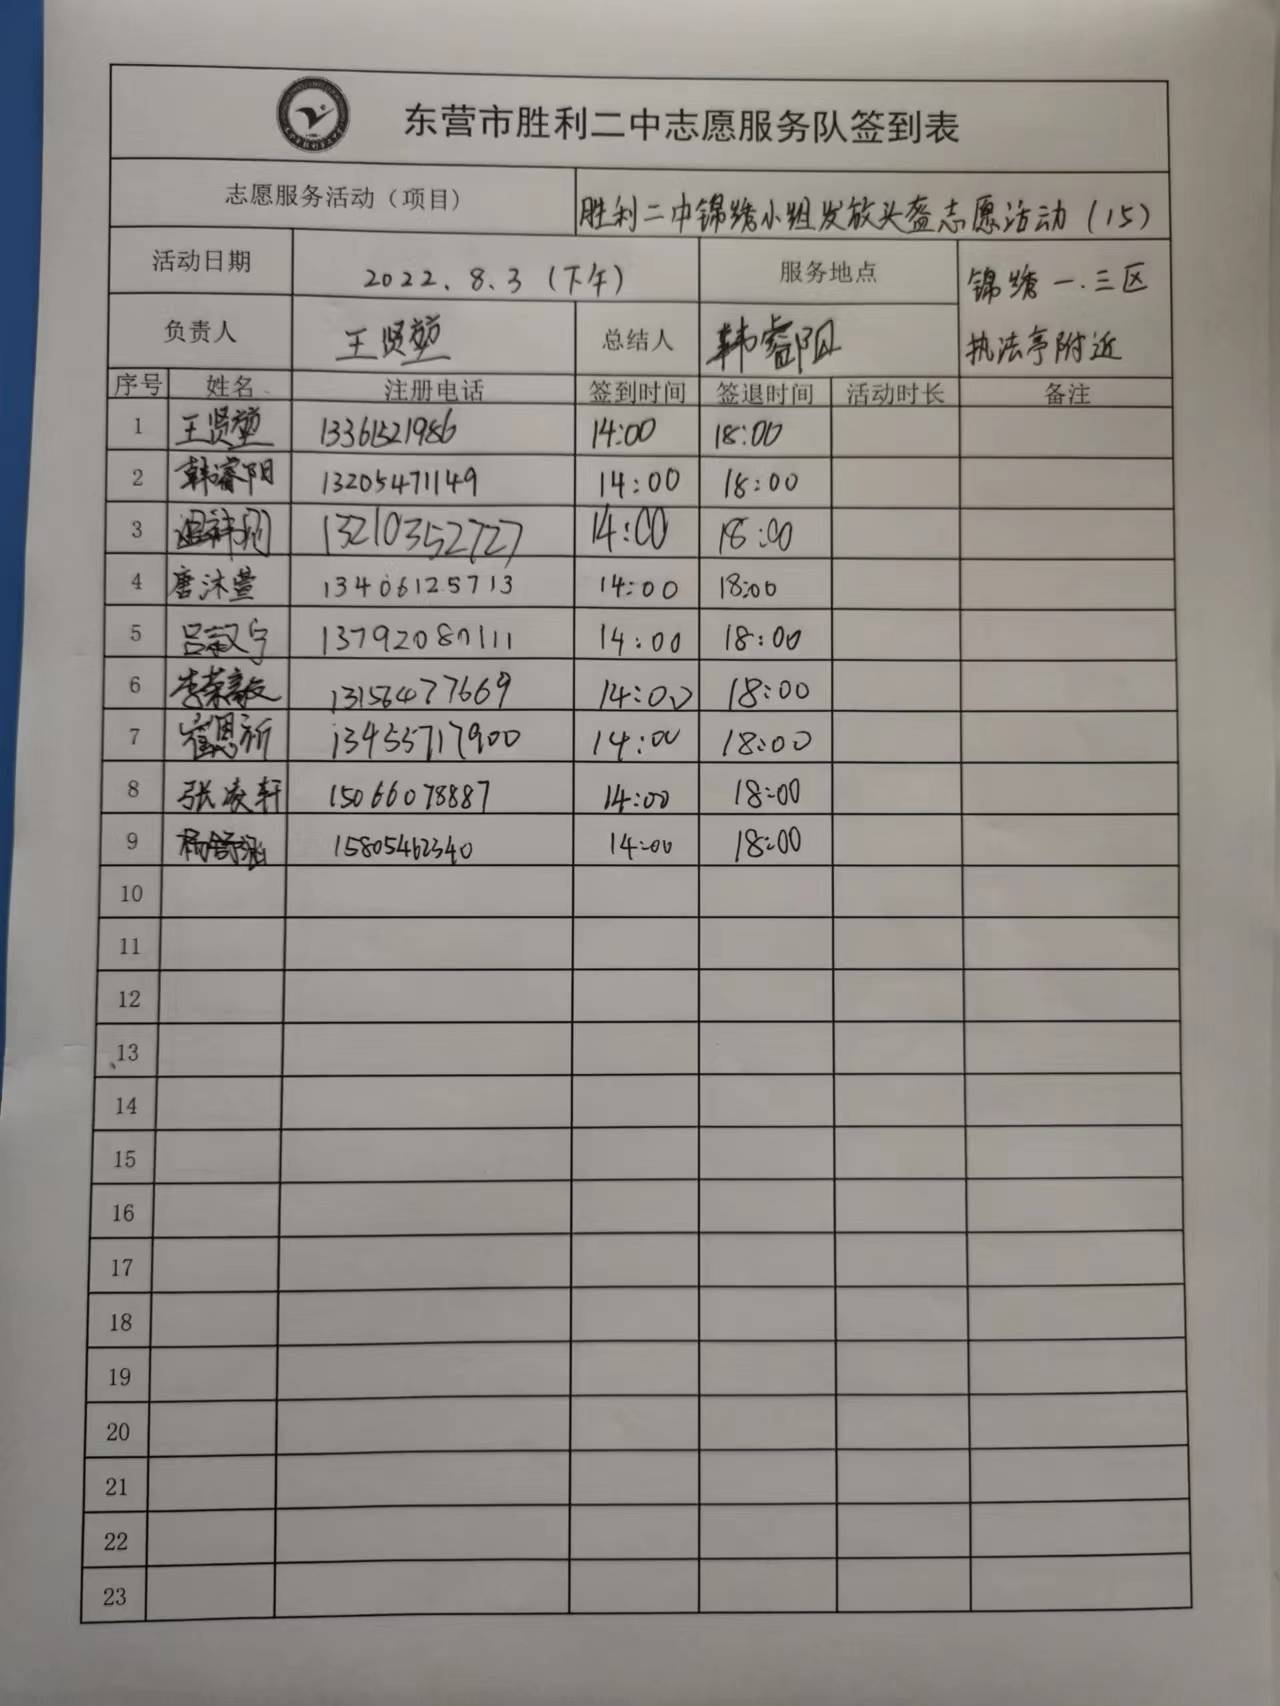 东营市胜利二中志愿服务队签到表
志愿服务活动（项目） 胜利二中锦绣小组发放头盔志愿活动（15）
活动日期 2022.8.3（下午） 服务地点 锦绣一.三区
负责人 王贤堃 总结人 韩睿阳 执法亭附近
序号 姓名 注册电话 签到时间 签退时间 活动时长 备注
1 王贤堃 13361521986 14:00 18:00
2 韩睿阳 13205471149 14:00 18:00
3 13210352727 14:00 18:00
4 唐沐萱 13406125713 14:00 18:00
5 吕 宁 13792087111 14:00 18:00
6 李荣 13156477669 14:00 18:00
7 崔恩祈 13455717900 14:00 18:00
8 张凌轩 15066078887 14:00 18:00
9 杨舒涵 15805462340 14:00 18:00
10
11
12
13
14
15
16
17
18
19
20
21
22
23